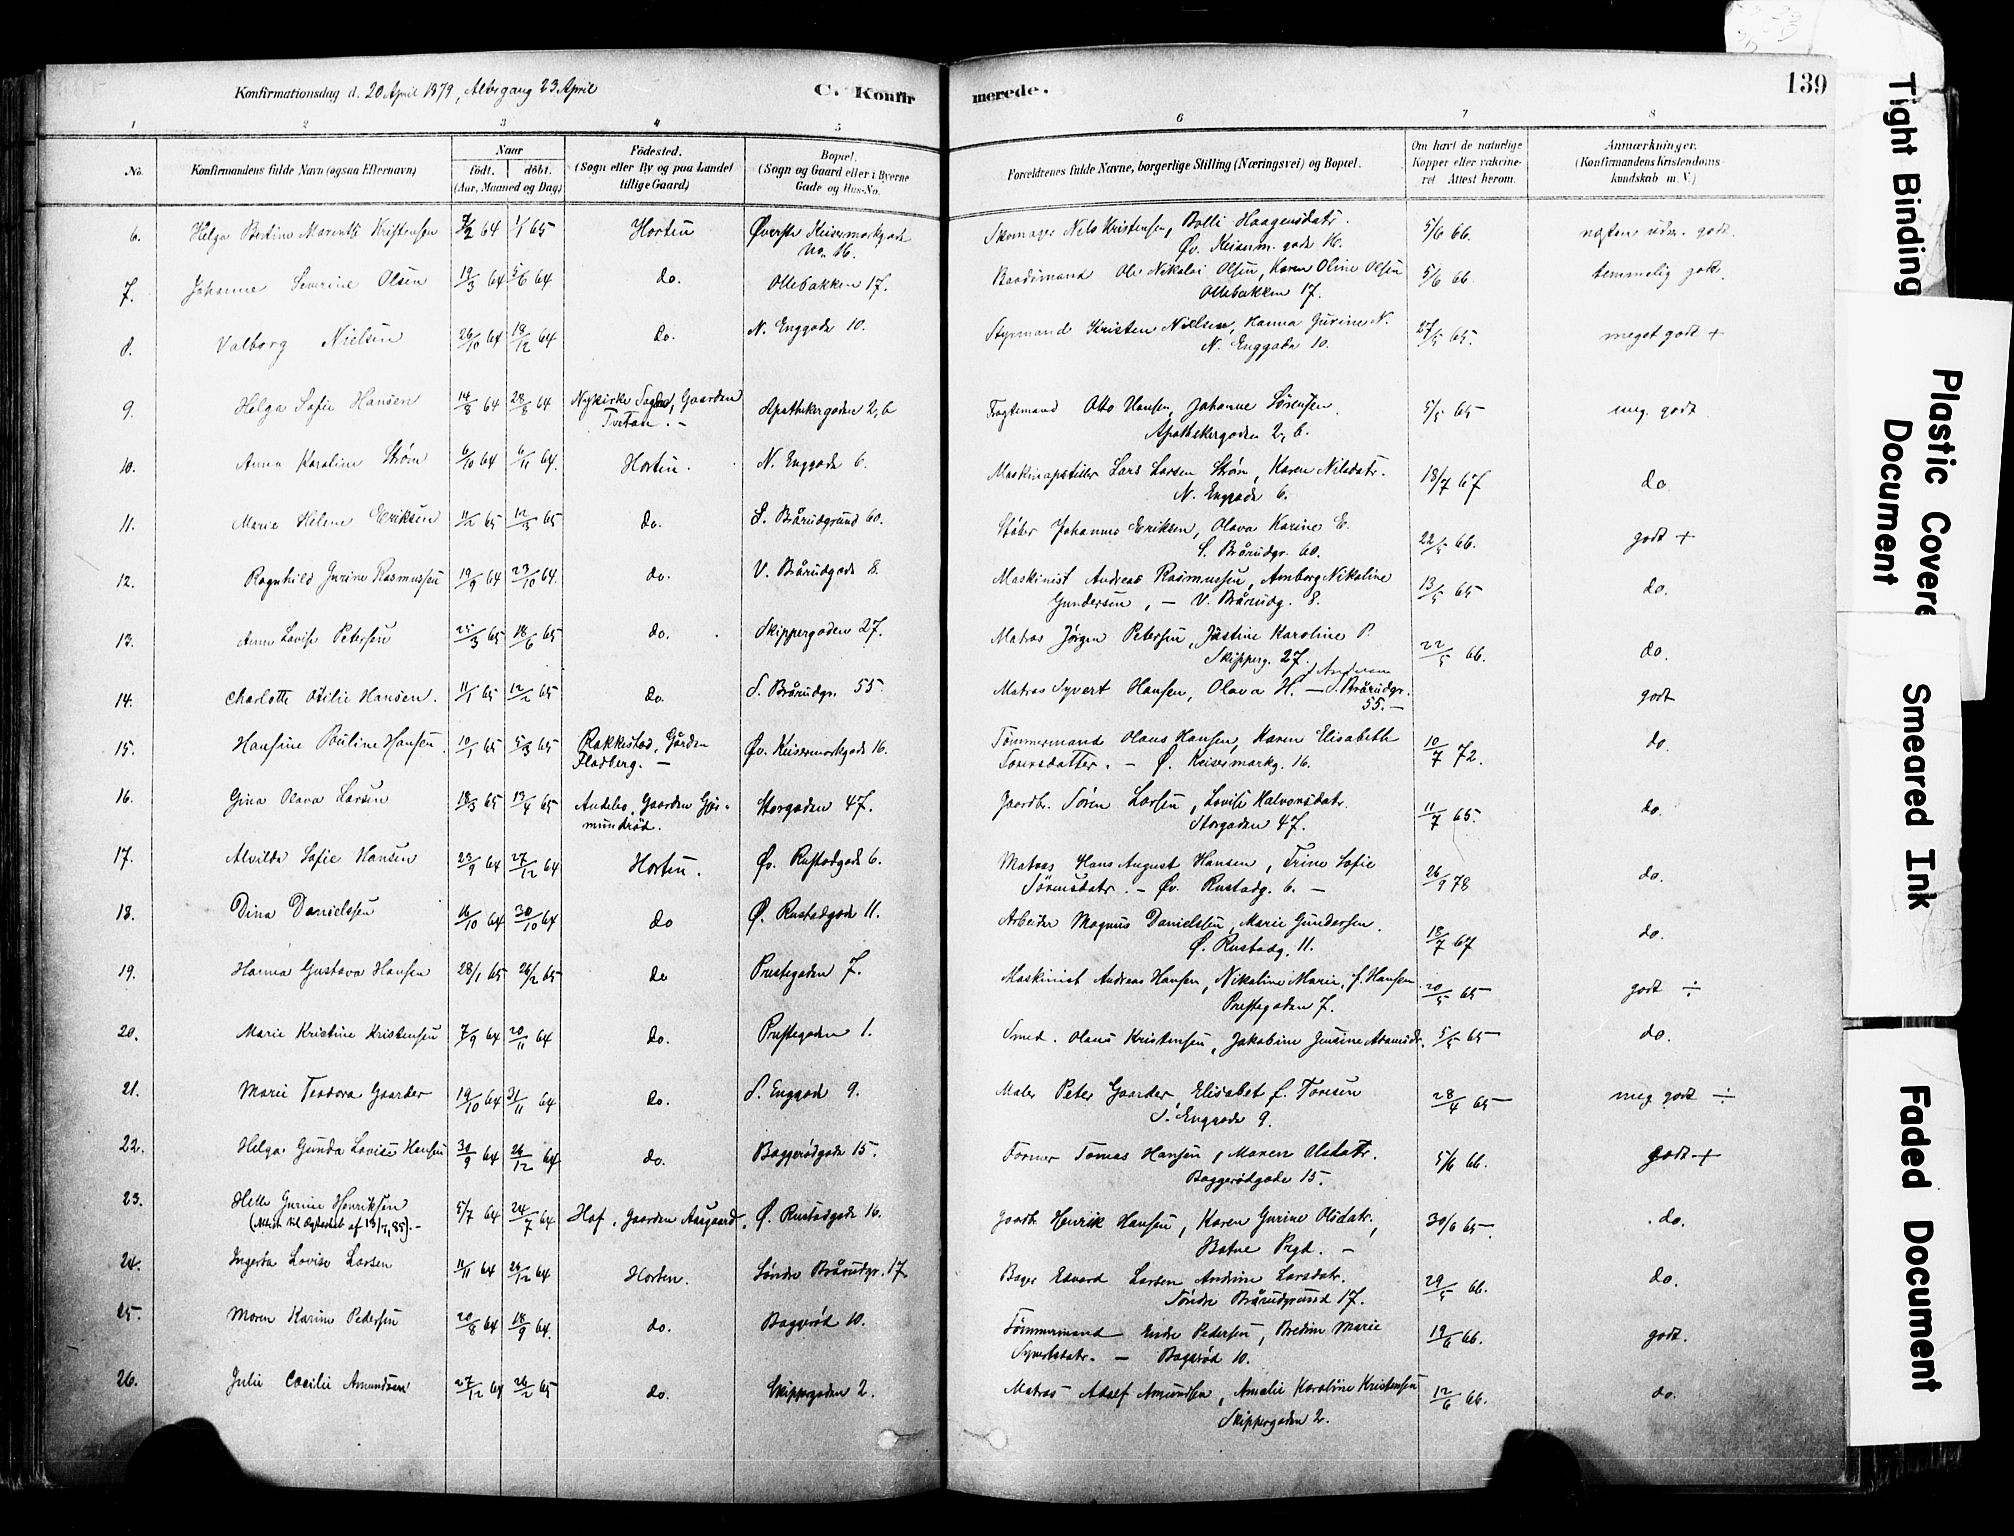 Konfirmationsdag d. 20 April 1879, Altergang 23 April
C. Konfir
merede.
139
1 2 3 4 5 6 7 8
No.
Konfirmandens fulde Navn (ogsaa Efternavn)
Naar
født. døbt.
(Aar, Maaned og Dag)
Fødested.
(Sogn eller By og paa Landet
tillige Gaard)
Bopæl.
(Sogn og Gaard eller i Byerne
Gade og Hus-No.
Forældrenes fulde Navne, borgerlige Stilling (Næringsvei) og Bopæl.
Om havt de naturlige
Kopper eller vakcine-
ret Attest herom.
Anmærkninger.
(Konfirmandens Kristendoms-
kundskab m. V.)
6. Helga Bertine Marentse Kristensen 64 1/1 65 Horten Øverste Keisermarkgade
No. 16.
Skomager Nils Kristensen, Bolli Haagensdatr.
Øv. Keiserm. gade 16.
5/6 66. næsten udm. godt.
7. Johanne Severine Olsen 19/3 64 5/6 64 do. Ollebakken 17.
Baadsmand Ole Nikolai Olsen, Karen Oline Olsen
Ollebakken 17.
5/6 66. temmelig godt.
8. Valborg Nielsen 26/10 64 18/12 64 do. N. Enggade 10.
Styrmand Kristen Nielsen, Hanna Gurine N.
N. Enggade 10.
27/5 65. meget godt +
9. Helga Sofie Hansen 14/8 64 28/8 64 Nykirke Sogn, Gaarden
Tveitan. - Apothekergaden 2, b
Fragtemand Otto Hansen, Johanne Sørensen.
Apothekergaden 2, b.
5/5 65 meg. godt
10. Anna Karoline Strøm 6/10 64 6/11 64. Horten. N. Enggade 6.
Maskinopstiller Lars Larsen Strøm, Karen Nilsdatr.
N. Enggade 6.
18/7 67 do.
11. Marie Helene Eriksen 11/2 65 12/3 65 do. S. Brårudgrund 60.
Støber Johannes Eriksen, Olava Karine E.
S. Brårudgr. 60.
22/5 66. godt +
12. Ragnhild Gurine Rasmussen 19/9 64 23/10 64. do. V. Brårudgade 8.
Maskinist Andreas Rasmussen, Amborg Nikoline
Gundersen, - V. Brårudg. 8.
13/5 65 do.
13. Anna Lovise Petersen 25/3 65 18/6 65 do. Skippergaden 27.
Matros Jørgen Petersen, Justine Karoline P.
Skipperg. 27.
22/5 66. do.
14. Charlotte Otilie Hansen. 11/1 65 12/2 65 do. S. Brårudgr. 55.
Matros Syvert Hansen, Olava H. - S. Brårudgr.
55. -
godt
15. Hansine Pauline Hansen. 10/1 65 5/3 65 Rakkestad, Gården
Fladberg. - Øv. Keisermarkgade 16.
Tømmermand Olaus Hansen, Karen Elisabeth
Torensdatter. - Ø. Keisermarkg. 16.
10/7 72. do.
16. Gina Olava Larsen 18/3 65 13/4 65 Andebo, Gaarden Gjer-
mundrød. Storgaden 47.
Gaardbr. Søren Larsen, Lovise Halvorsdatr.
Storgaden 47.
11/7 65. do.
17. Alvilde Sofie Hansen 23/9 64 27/12 64 Horten. Øv. Rustadgade 6.
Matros Hans August Hansen, Trine Sofie
Sørensdatr. - Øv. Rustadg. 6. -
26/9 78 do.
18. Dina Danielssen 16/10 64 30/10 64 do Ø. Rustadgade 11.
Arbeider Magnus Danielssen, Marie Gundersen.
Ø. Rustadg. 11.
18/7 67 do.
19. Hanna Gustava Hansen 28/1 65 26/2 65 do Prestegaden 7.
Maskinist Andreas Hansen, Nikoline Marie, f. Hansen.
Prestegaden 7.
20/5 65 godt ÷
20. Marie Kristine Kristensen 7/9 64 20/11 64 do. Prestegaden 1.
Smed. Olaus Kristensen, Jakobine Gurine Adamsdr.
5/5 65 do.
21. Marie Teodora Gaarder 19/10 64 64 do. S. Enggade 9.
Maler Peter Gaarder, Elisabet f. Toresen
S. Enggade 9.
28/4 65 meg godt ÷
22. Helga Gunda Lovise Hansen 30/9 64 26/12 64 do. Baggerødgade 15.
Former Tomas Hansen, Maren Olsdatr.
Baggerødgade 15.
5/6 66. godt +
23. Helle Gurine Henriksen 5/7 64 24/7 64 Hof, Gaarden Aasgaard. Ø. Rustadgade 16.
Gaardbr. Henrik Hansen, Karen Gurine Olsdatr.,
Botne Prgd. -
30/6 65. do.
24. Ingerta Lovise Larsen 11/11 64 26/12 64 Horten. Søndre Brårudgr. 17.
Bager Edvard Larsen Andrine Larsdatr.
Søndre Brårudgrund 17.
29/5 66. do.
25. Maren Karine Pedersen 20/8 64 18/9 64. do. Baggerød 10.
Tømmermand Endre Pedersen, Bredine Marie
Syvertsdatr. - Baggerød 10.
19/6 66. godt.
26. Julie Cæcilie Amundsen 27/12 64 26/2 65 do. Skippergaden 2.
Matros Adolf Amundsen, Amalie Karoline Kristensen
Skippergaden 2.
12/6 66. do.
Tight Binding
Plastic Covere
Document
Smeared Ink
Faded Document